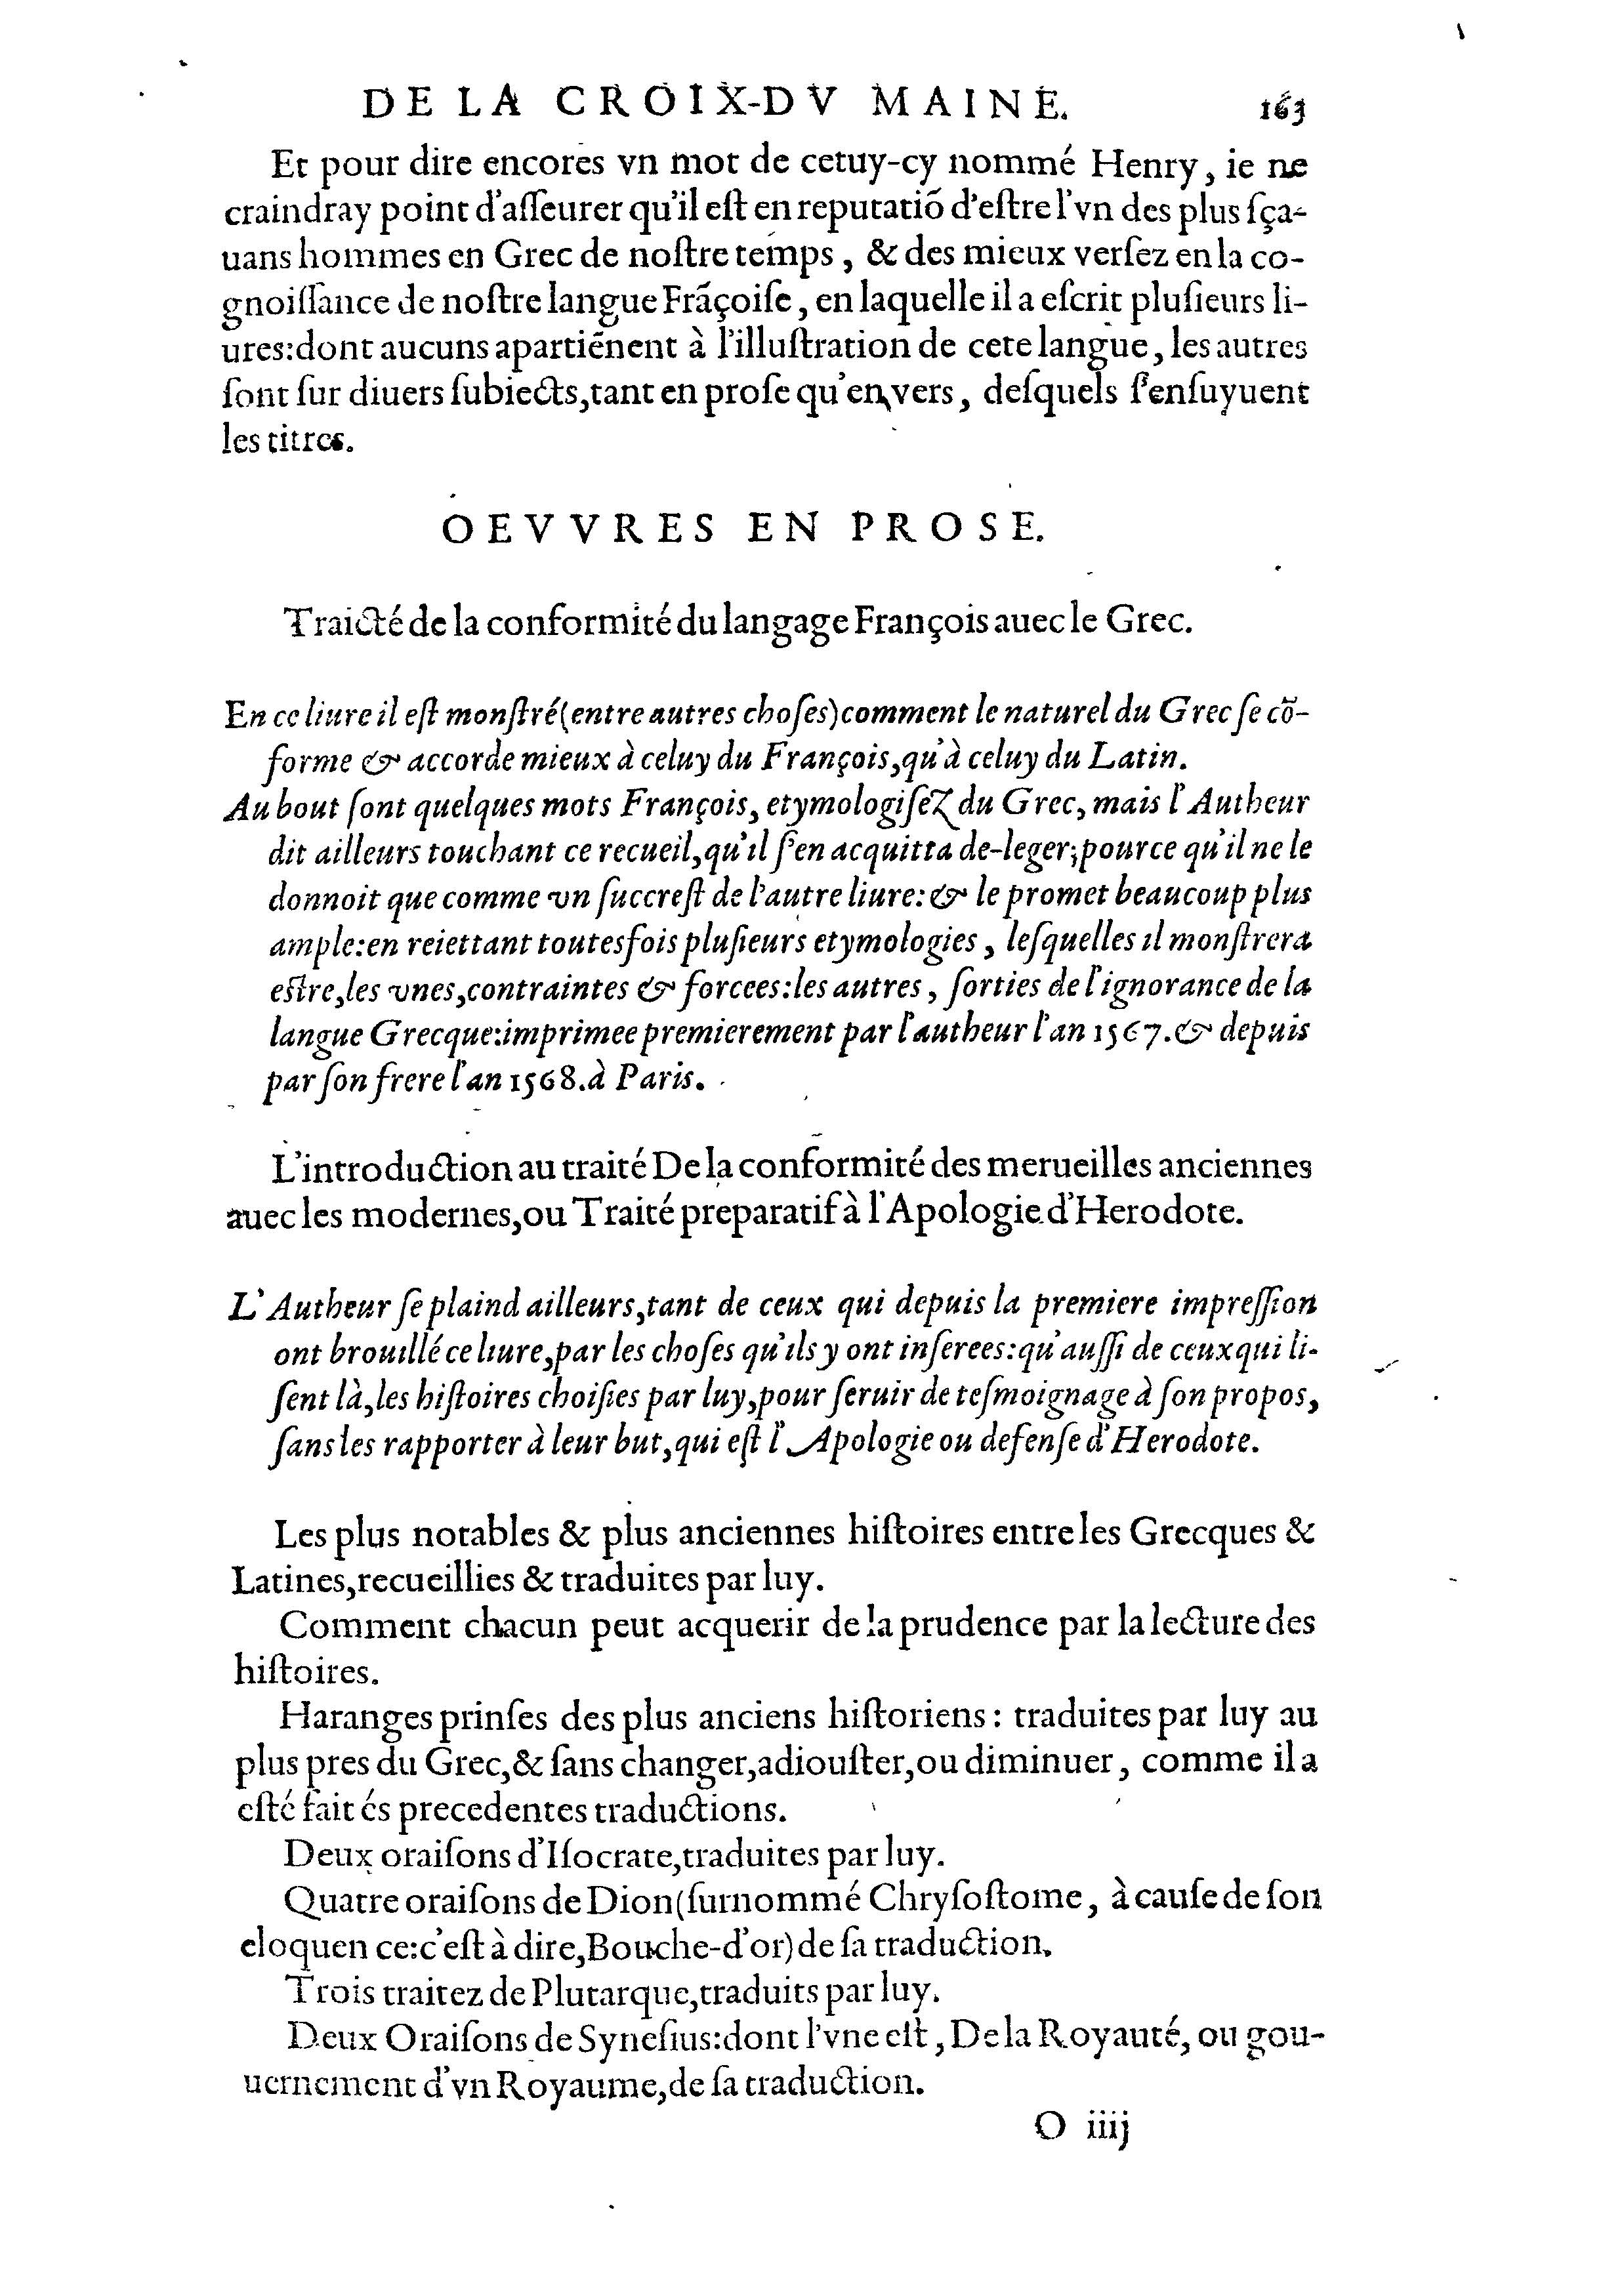 DE LA CROIX-DV MAINE. 163
Et pour dire encores vn mot de cetuy-cy nommé Henry, ie ne
craindray point d'aſſeurer qu'il eſt en reputatiõ d'eſtre l'vn des plus ſça-
uans hommes en Grec de noſtre temps, & des mieux verſez en la co-
gnoiſſance de noſtre langue Frãçoiſe, en laquelle il a eſcrit pluſieurs li-
ures: dont aucuns apartiẽnent à l'illuſtration de cete langue, les autres
ſont ſur diuers ſubiects, tant en proſe qu'en vers, deſquels ſ'enſuyuent
les titres.
OEVVRES EN PROSE.
Traicté de la conformité du langage François auec le Grec.
En ce liure il eſt monſtré (entre autres choſes) comment le naturel du Grec ſe cõ-
forme & accorde mieux à celuy du François, qu'à celuy du Latin.
Au bout ſont quelques mots François, etymologiſez du Grec, mais l'Autheur
dit ailleurs touchant ce recueil, qu'il ſ'en acquitta de-leger; pource qu'il ne le
donnoit que comme vn ſuccreſt de l'autre liure: & le promet beaucoup plus
ample: en reiettant toutesfois pluſieurs etymologies, leſquelles il monſtrera
eſtre, les vnes, contraintes & forcees: les autres, ſorties de l'ignorance de la
langue Grecque: imprimee premierement par l'autheur l'an 1567. & depuis
par ſon frere l'an 1568. à Paris.
L'introduction au traité De la conformité des merueilles anciennes
auec les modernes, ou Traité preparatif à l'Apologie d'Herodote.
L'Autheur ſe plaind ailleurs, tant de ceux qui depuis la premiere impreſſion
ont brouillé ce liure, par les choſes qu'ils y ont inſerees: qu'auſſi de ceux qui li-
ſent là, les hiſtoires choiſies par luy, pour ſeruir de teſmoignage à ſon propos,
ſans les rapporter à leur but, qui eſt l'Apologie ou defenſe d'Herodote.
Les plus notables & plus anciennes hiſtoires entre les Grecques &
Latines, recueillies & traduites par luy.
Comment chacun peut acquerir de la prudence par la lecture des
hiſtoires.
Haranges prinſes des plus anciens hiſtoriens: traduites par luy au
plus pres du Grec, & ſans changer, adiouſter, ou diminuer, comme il a
eſté fait és precedentes traductions.
Deux oraiſons d'Iſocrate, traduites par luy.
Quatre oraiſons de Dion (ſurnommé Chryſoſtome, à cauſe de ſon
eloquen ce: c'eſt à dire, Bouche-d'or) de ſa traduction.
Trois traitez de Plutarque, traduits par luy.
Deux Oraiſons de Syneſius: dont l'vne eſt, De la Royauté, ou gou-
uernement d'vn Royaume, de ſa traduction.
O iiij